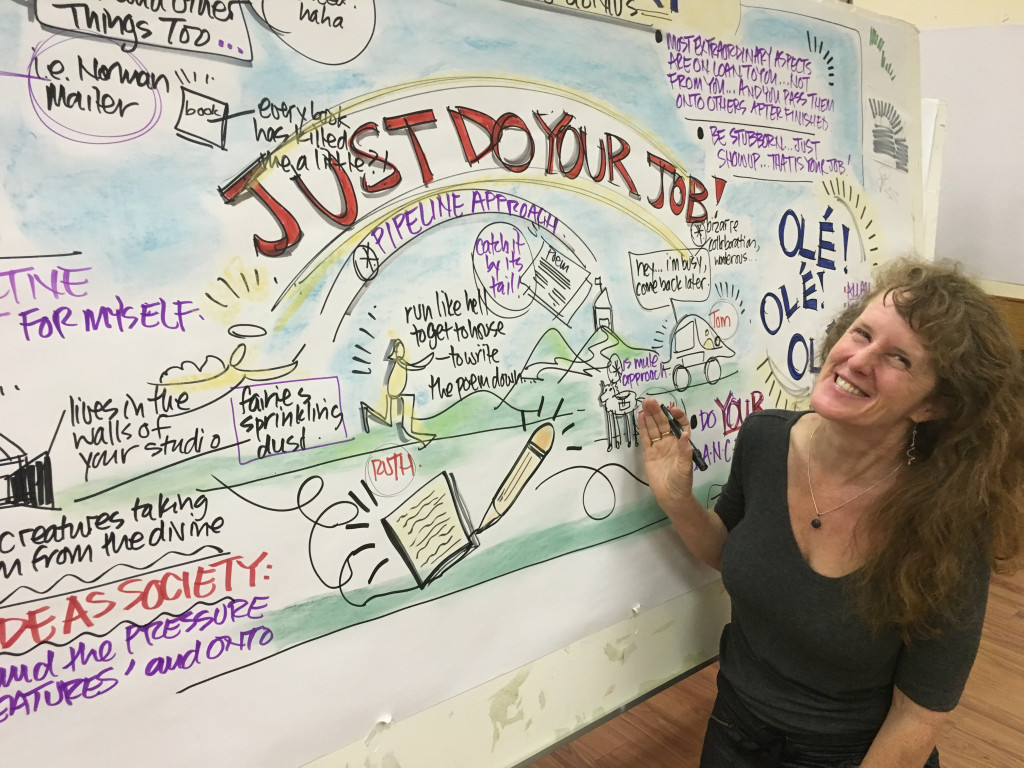 Things Too...
haha
i.e. Norman
Mailer
book
every book
has killed
me a little?!
JUST DO YOUR JOB!
PIPELINE APPROACH
MOST EXTRAORDINARY ASPECTS
ARE ON LOAN TO YOU... NOT
FROM YOU... AND YOU PASS THEM
ONTO OTHERS AFTER FINISHED
BE STUBBORN... JUST
SHOW UP... THAT IS YOUR JOB!
bizarre
collaboration,
OLÉ!
OLÉ!
OL
catch it
by its
tail!
Poem
hey... i'm busy,
come back later.
Tom
run like hell
to get to house
to write
the poem down...
is mule
approach
DO YOUR
FOR MYSELF.
lives in the
walls of
your studio
fairies
sprinkling
dust!
RUTH.
creatures taking
from the divine
SOCIETY:
and the PRESSURE
EATURES' and ONTO